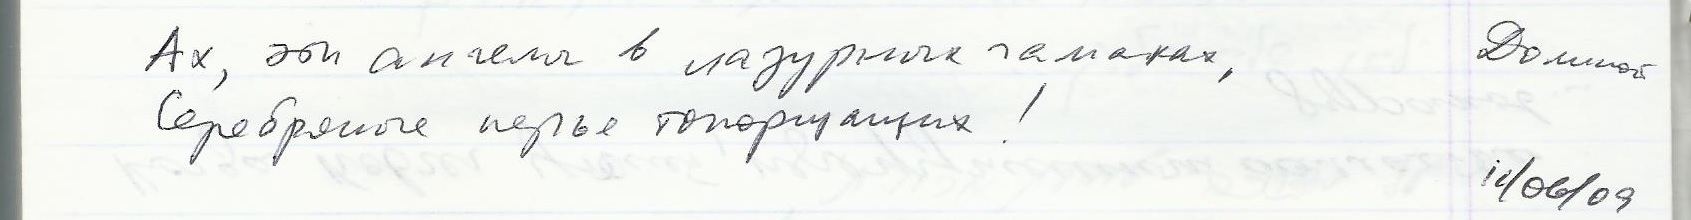 Ах, эти ангелы в лазурных гамаках,
Серебряные перье топорщащих!
Домной
14/06/09